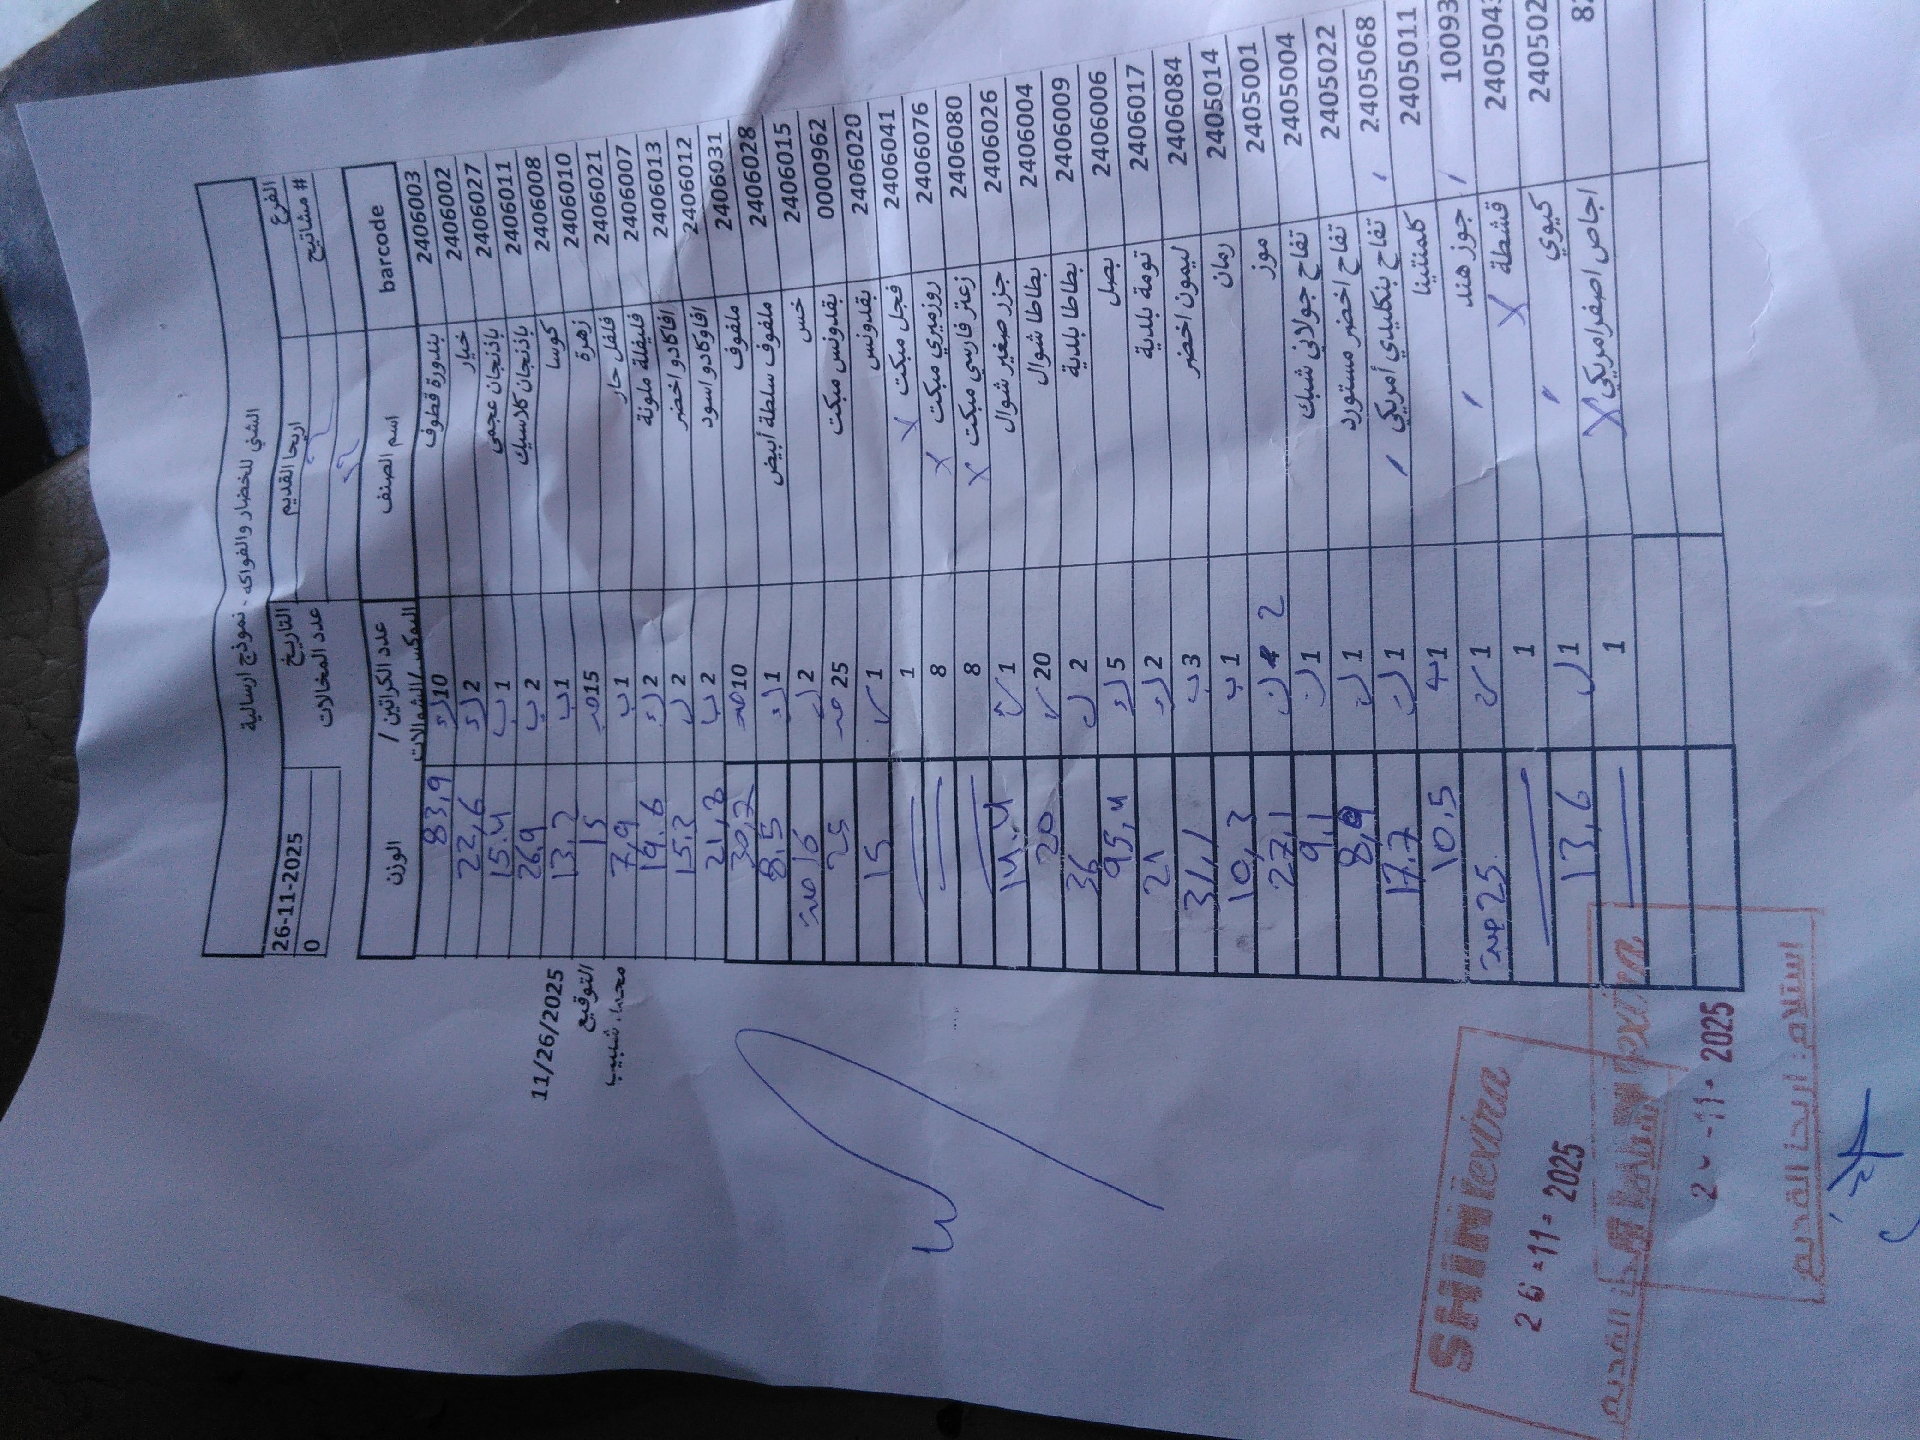 الشني للخضار والفواكه - نموذج ارسالية
الفرع اريحا القديم التاريخ 26-11-2025
# مشاتيح عدد المخالات 0
barcode اسم الصنف عدد الكراتين / البوكس/الشوالات الوزن
2406003 بندورة قطوف 10 83,9
2406002 خيار 2 22,6
2406027 باذنجان عجمي 1 ب 15.4
2406011 باذنجان كلاسيك 2 ب 26,9
2406008 كوسا 1 ب 13,2
2406010 زهرة 15 15
2406021 فلفل حار 1 ب 7,9
2406007 فليفلة ملونة 2 19.6
2406013 افاكادو اخضر 2 15,2
2406012 افاوكادو اسود 2 ب 21,8
2406031 ملفوف 10 30,2
2406028 ملفوف سلطة أبيض 1 8,5
2406015 خس 2
0000962 بقدونس مبكت 25 25
2406020 بقدونس 1 15
2406041 فجل مبكت X 1
2406076 روزميري مبكت X 8
2406080 زعتر فارسي مبكت X 8
2406026 جزر صغير شوال 1 14.4
2406004 بطاطا شوال 20 20
2406009 بطاطا بلدية 2 36
2406006 بصل 5 95,4
2406017 تومة بلدية 2 21
2406084 ليمون اخضر 3 ب 31,1
2405014 رمان 1 ب 10,3
2405001 موز 2 27,1
2405004 تفاح جولاني شبك 1 9,1
2405022 تفاح اخضر مستورد 1 8,9
2405068 تفاح بنكليدي أمريكي 1 17.7
2405011 كلمنتينا 1 10,5
10093 جوز هند 1 25
240504 قشطة X 1
240502 كيوي 1 13,6
8 اجاص اصفر امريكي X 1
11/26/2025
التوقيع
SHINI extra
26-11-2025
extra
-11-2025
استلام: اريحا القديم